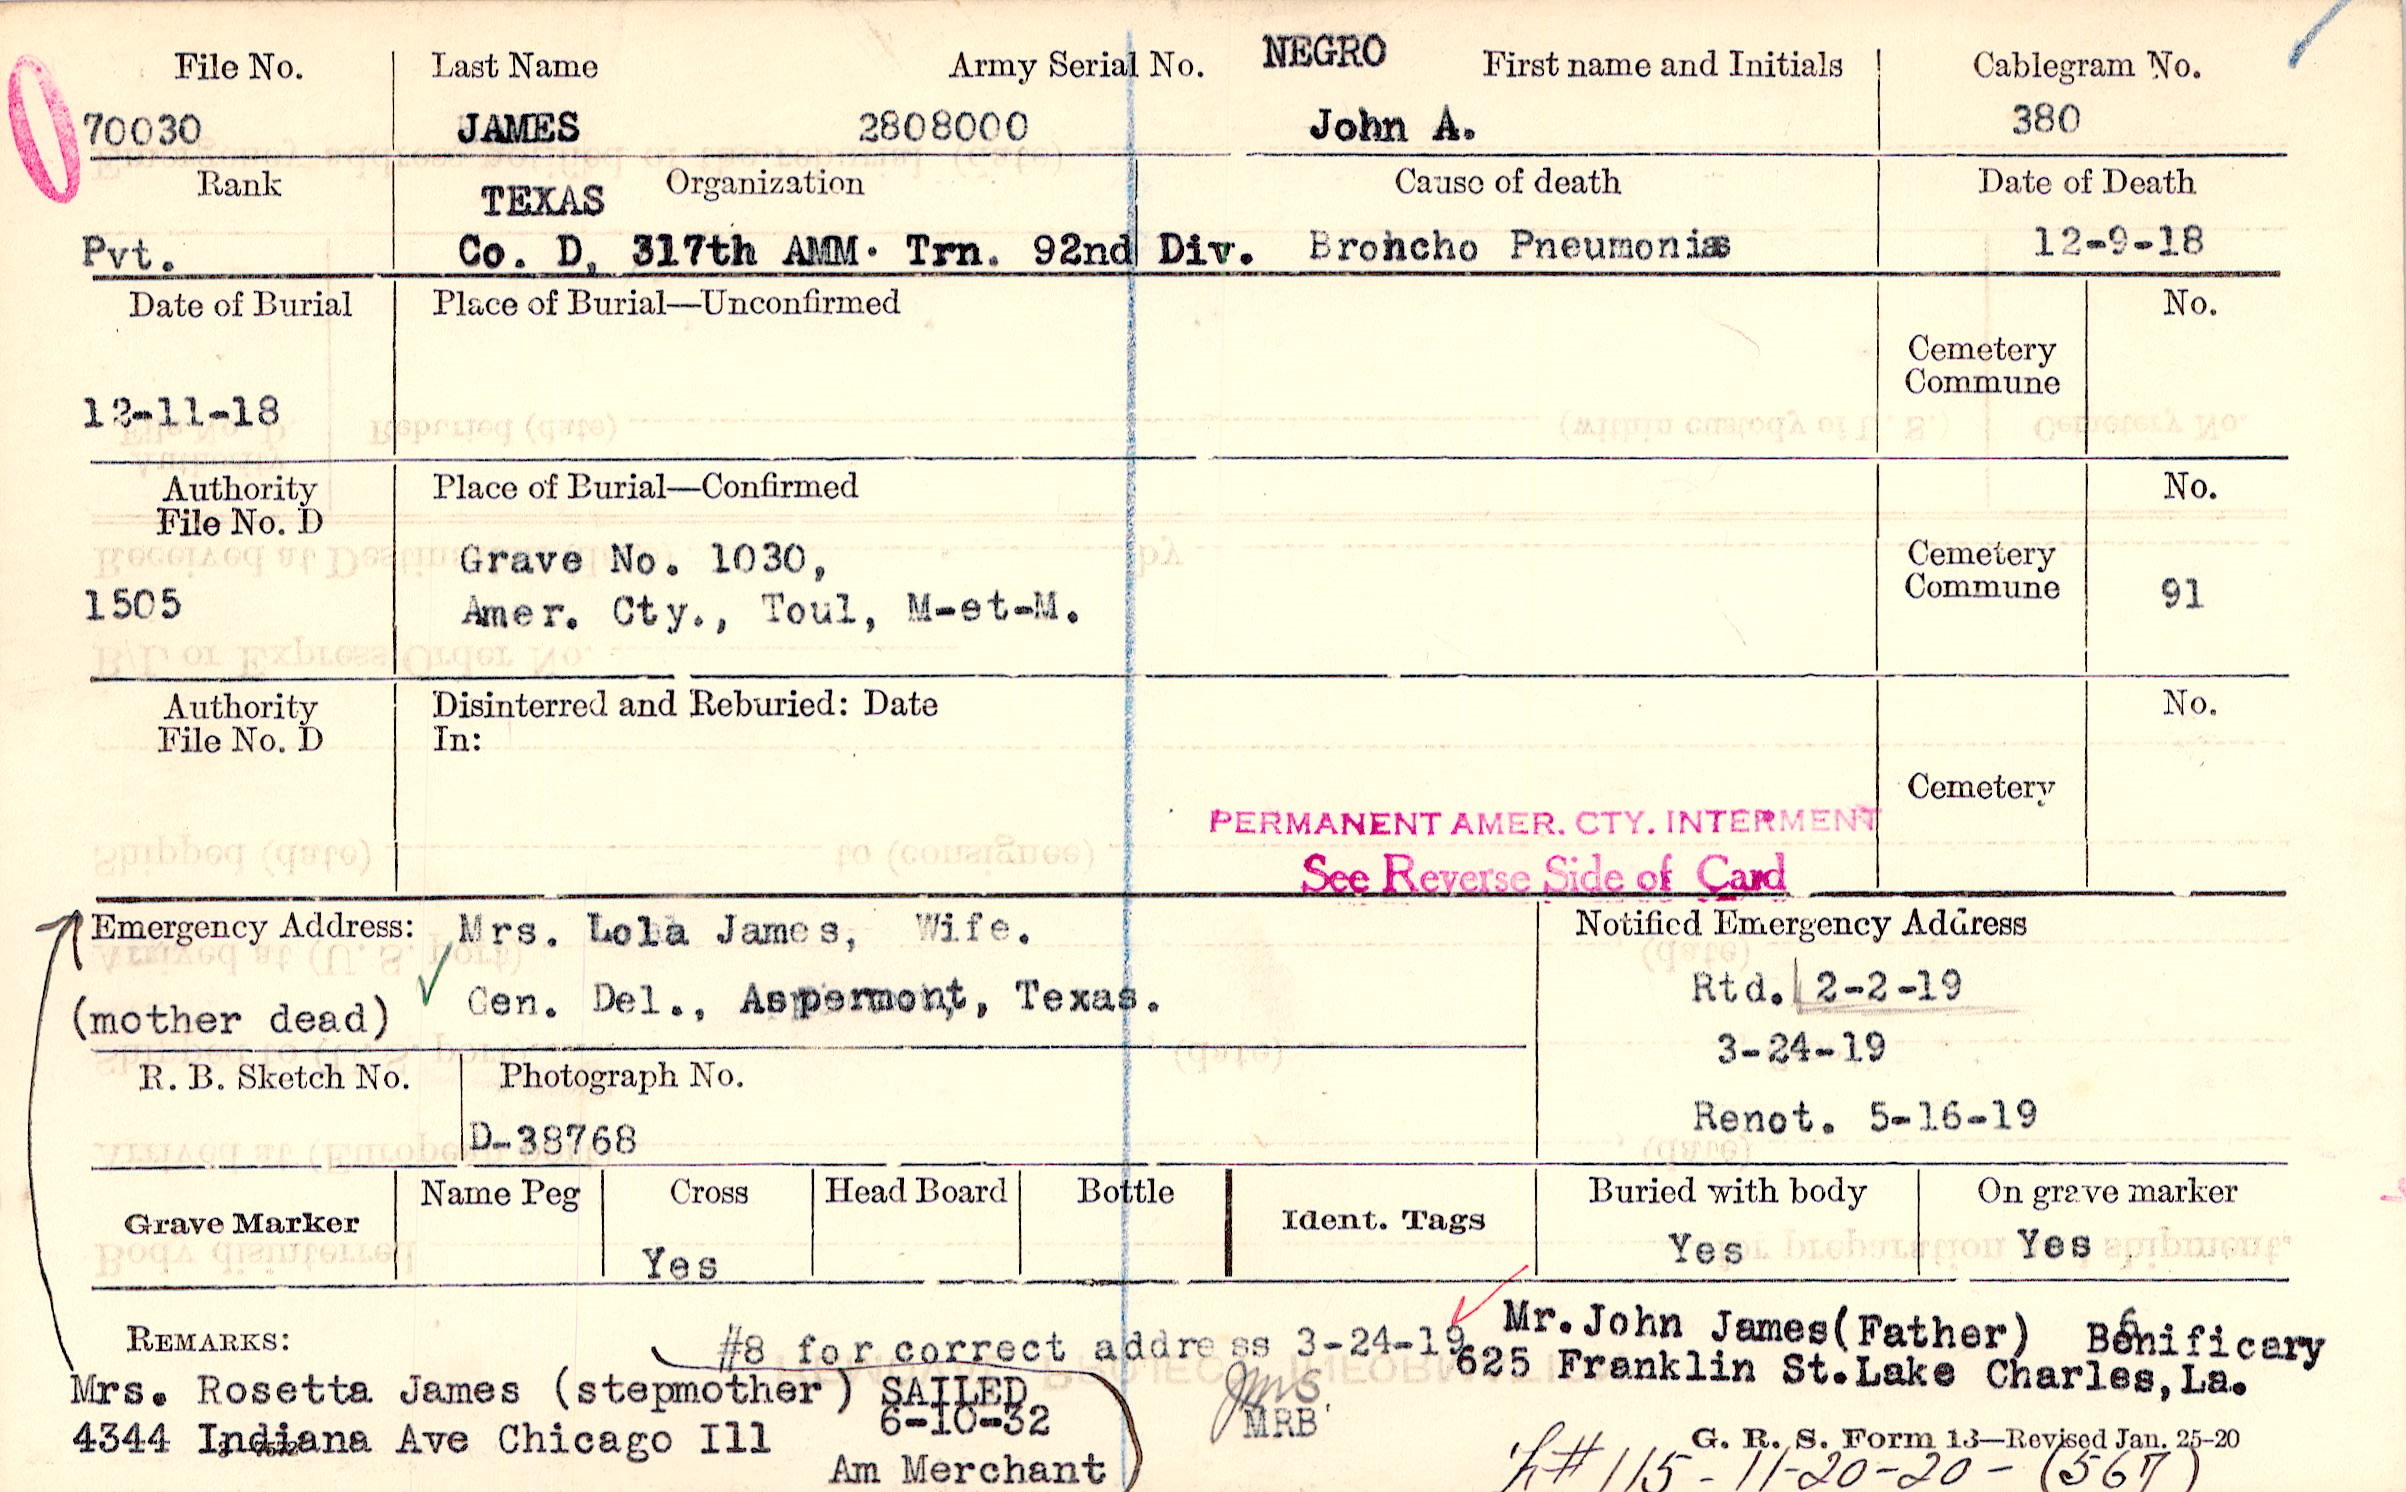 File No. Last Name Army Serial No. NEGRO First name and Initials Cablegram No.
70030 JAMES 2808000 John A. 380
Rank TEXAS Organization Cause of death Date of Death
Pvt. Co. D, 317th AMM. Trn. 92nd Div. Broncho Pneumonia 12-9-18
Date of Burial Place of Burial—Unconfirmed No.
Cemetery
Commune
12-11-18
Authority Place of Burial—Confirmed No.
File No. D
Grave No. 1030, Cemetery
1505 Amer. Cty., Toul, M-et-M. Commune 91
Authority Disinterred and Reburied: Date No.
File No. D In:
Cemetery
PERMANENT AMER. CTY. INTERMENT
See Reverse Side of Card
Emergency Address: Mrs. Lola James, Wife. Notified Emergency Address
(mother dead) Gen. Del., Aspermont, Texas. Rtd. 2-2-19
3-24-19
R. B. Sketch No. Photograph No.
D-38768 Renot. 5-16-19
Grave Marker Name Peg Cross Head Board Bottle Ident. Tags Buried with body On grave marker
Yes Yes Yes
REMARKS: #8 for correct address 3-24-19 Mr. John James (Father) Benificary
625 Franklin St. Lake Charles, La.
Mrs. Rosetta James (stepmother) SAILED
6-10-32 MRB
4344 Indiana Ave Chicago Ill
Am Merchant
G. R. S. Form 13—Revised Jan. 25-20
#115-11-20-20-(567)